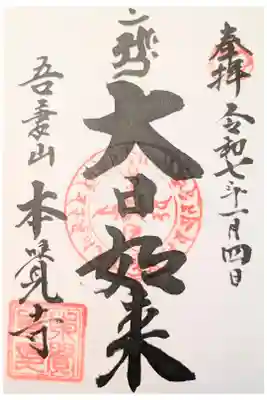 奉拝 令和七年一月四日
大日如来
吾妻山 本覺寺